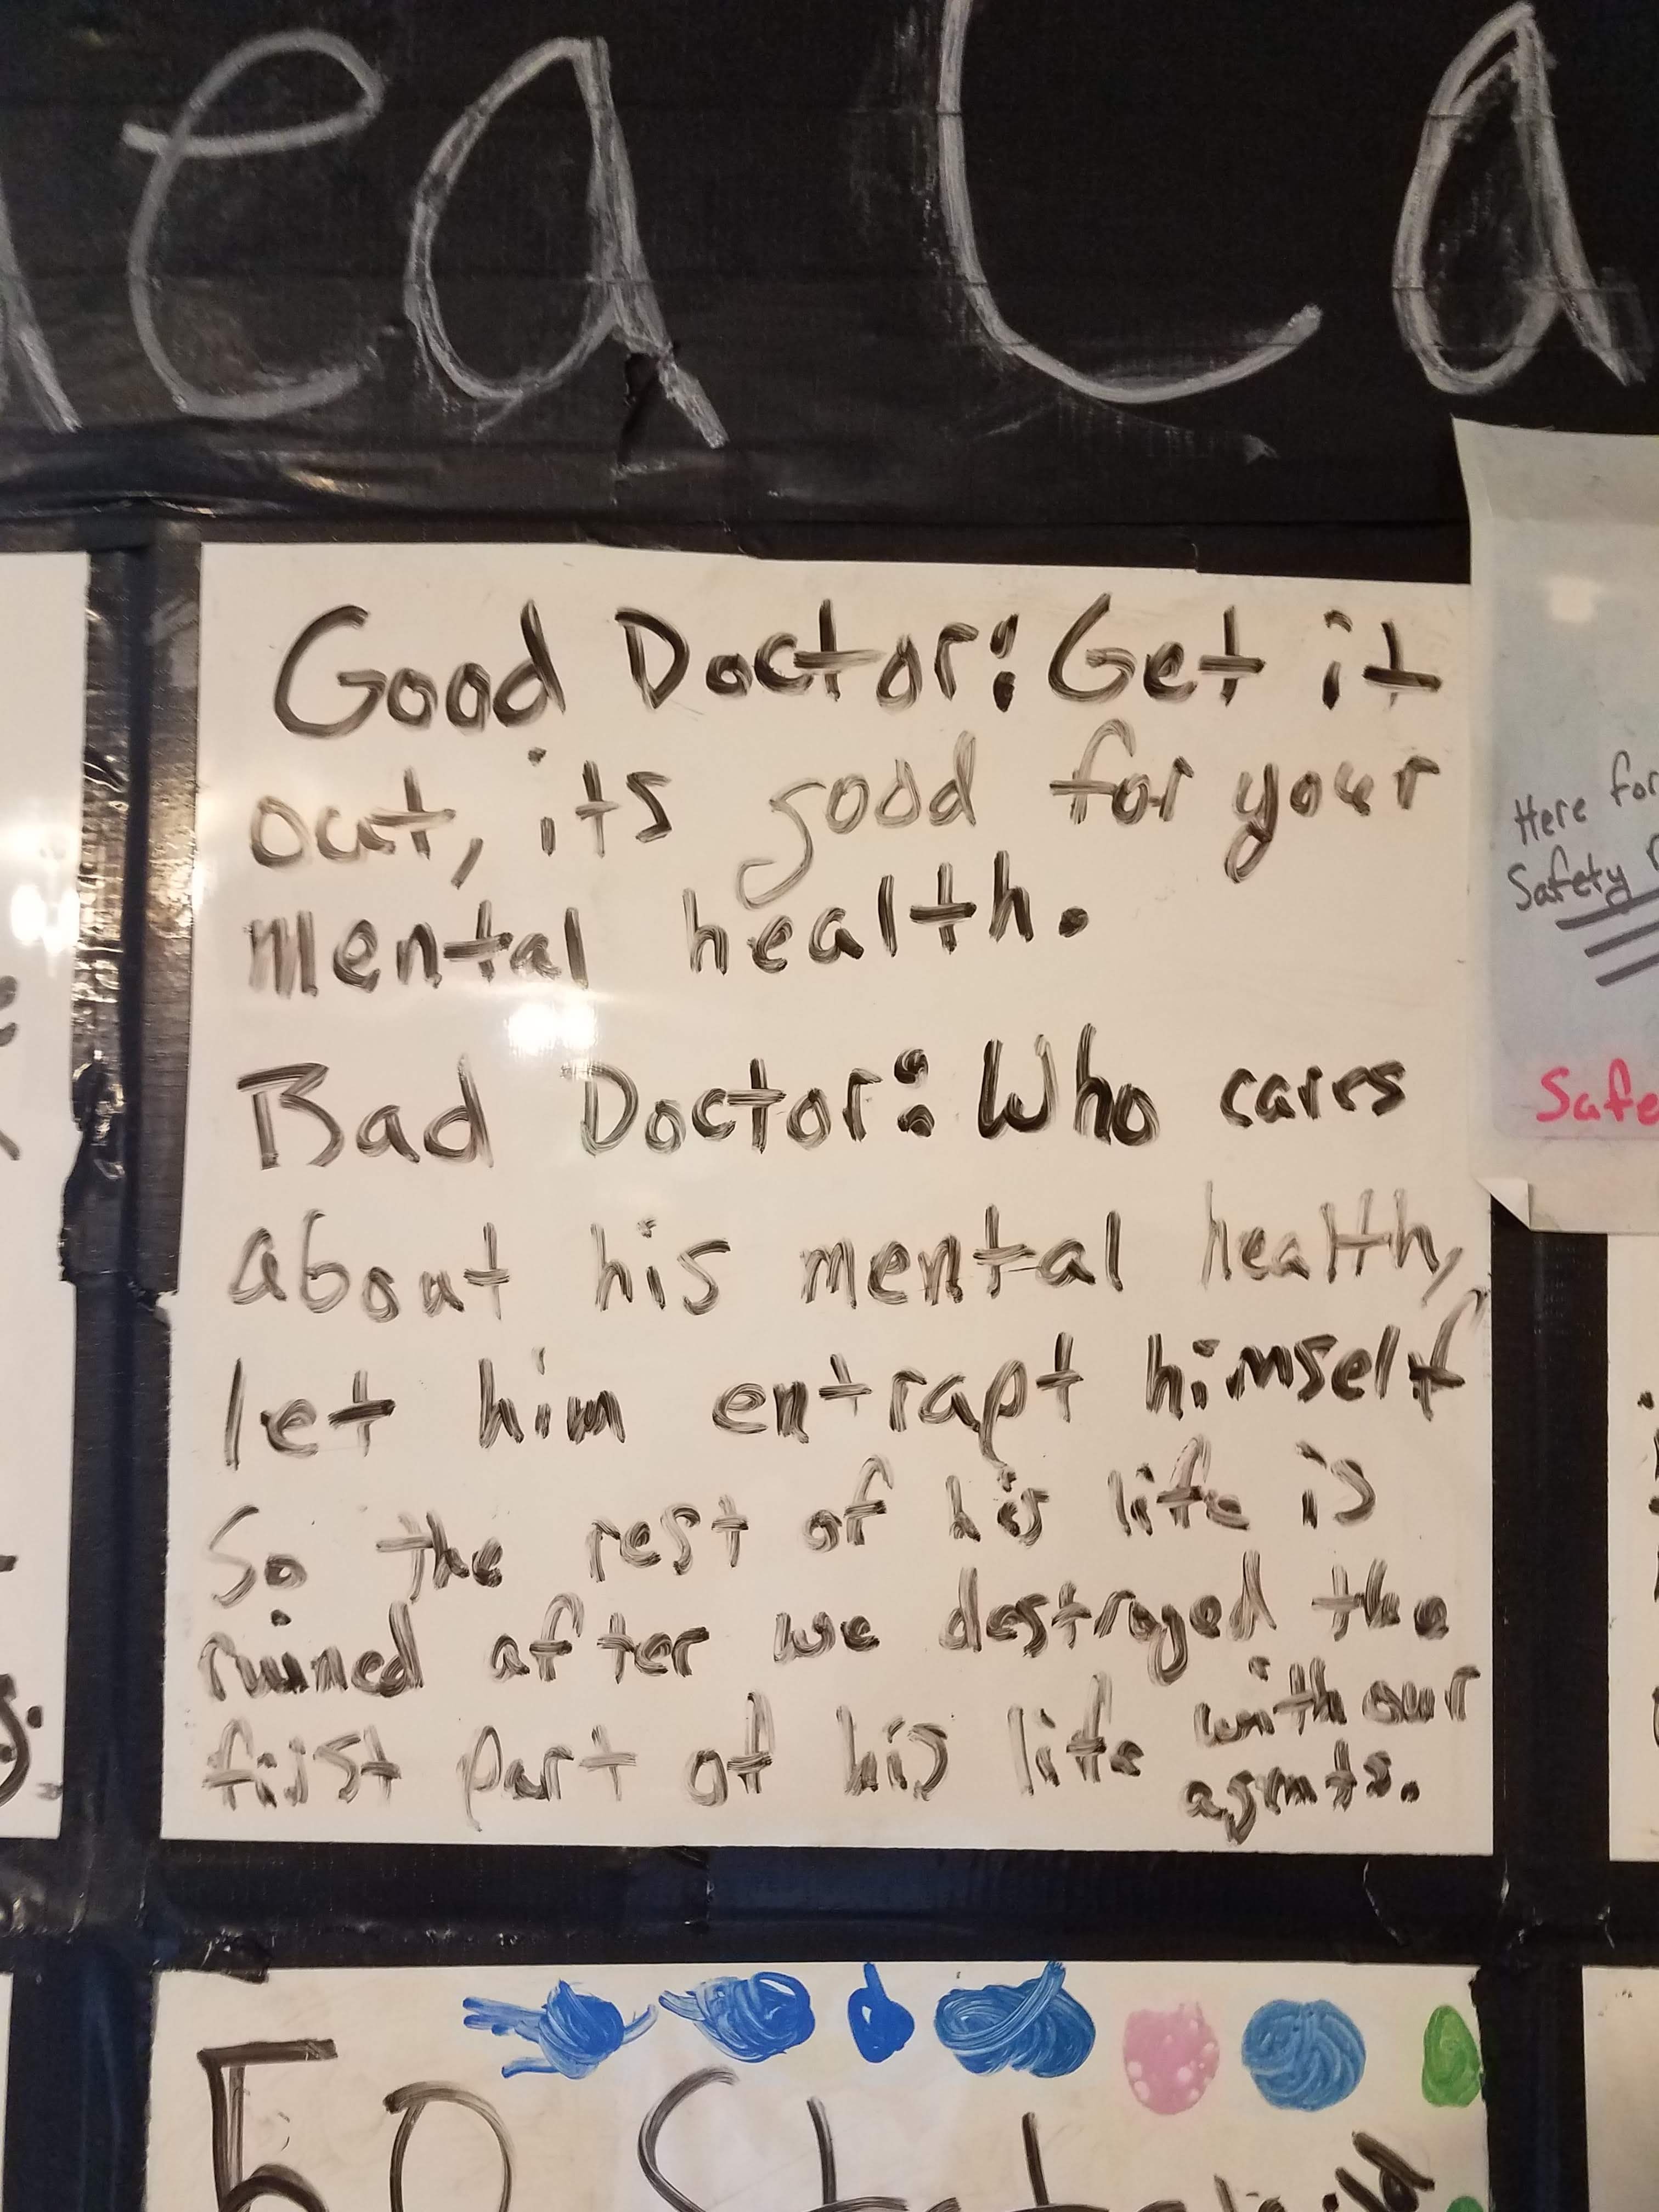 ea Ca
Good Doctor: Get it
out, its good for your
mental health.
Bad Doctor: Who cares
about his mental health,
let him entrapt himself
So the rest of his life is
ruined after we destroyed the
first part of his life with our
agents.
Here for
Safety
Safe
50 State